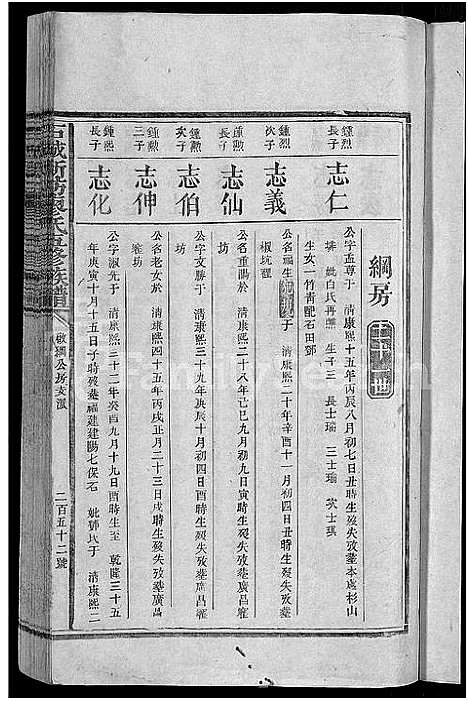 綱房
鍾烈
長子
志仁
公字孟尊于　清康熙十五年丙辰八月初七日丑時生歿失攷塟本處杉山
排　妣白氏再醮　生子三　長士瑞　三士瑜　次士琪
生女一竹青配石田鄧
鍾烈
次子
志義
公名　生　于　清康熙二十年辛酉十一月初四日丑時生歿失攷塟
椒坑
鍾勲
長子
志仙
公名重陽於　清康熙二十八年己巳九月初九日生歿失攷塟廣昌
坊
鍾勲
次子
志伯
公字文勝于　清康熙三十九年庚辰十月初四日時生歿失攷塟廣昌
坊
鍾勲
三子
志伸
公名老女於　清康熙四十五年丙戌正月二十三日戌時生歿失攷塟廣昌
坊
鍾熙
長子
志化
公字淑先于　清康熙三十二年癸酉九月十九日酉時生至　乾隆三十五
年庚寅十月十五日子時歿塟福建建陽七保石　妣鄧氏于　清康熙二
氏五修族譜
敬綱公房支派
二百五十二號